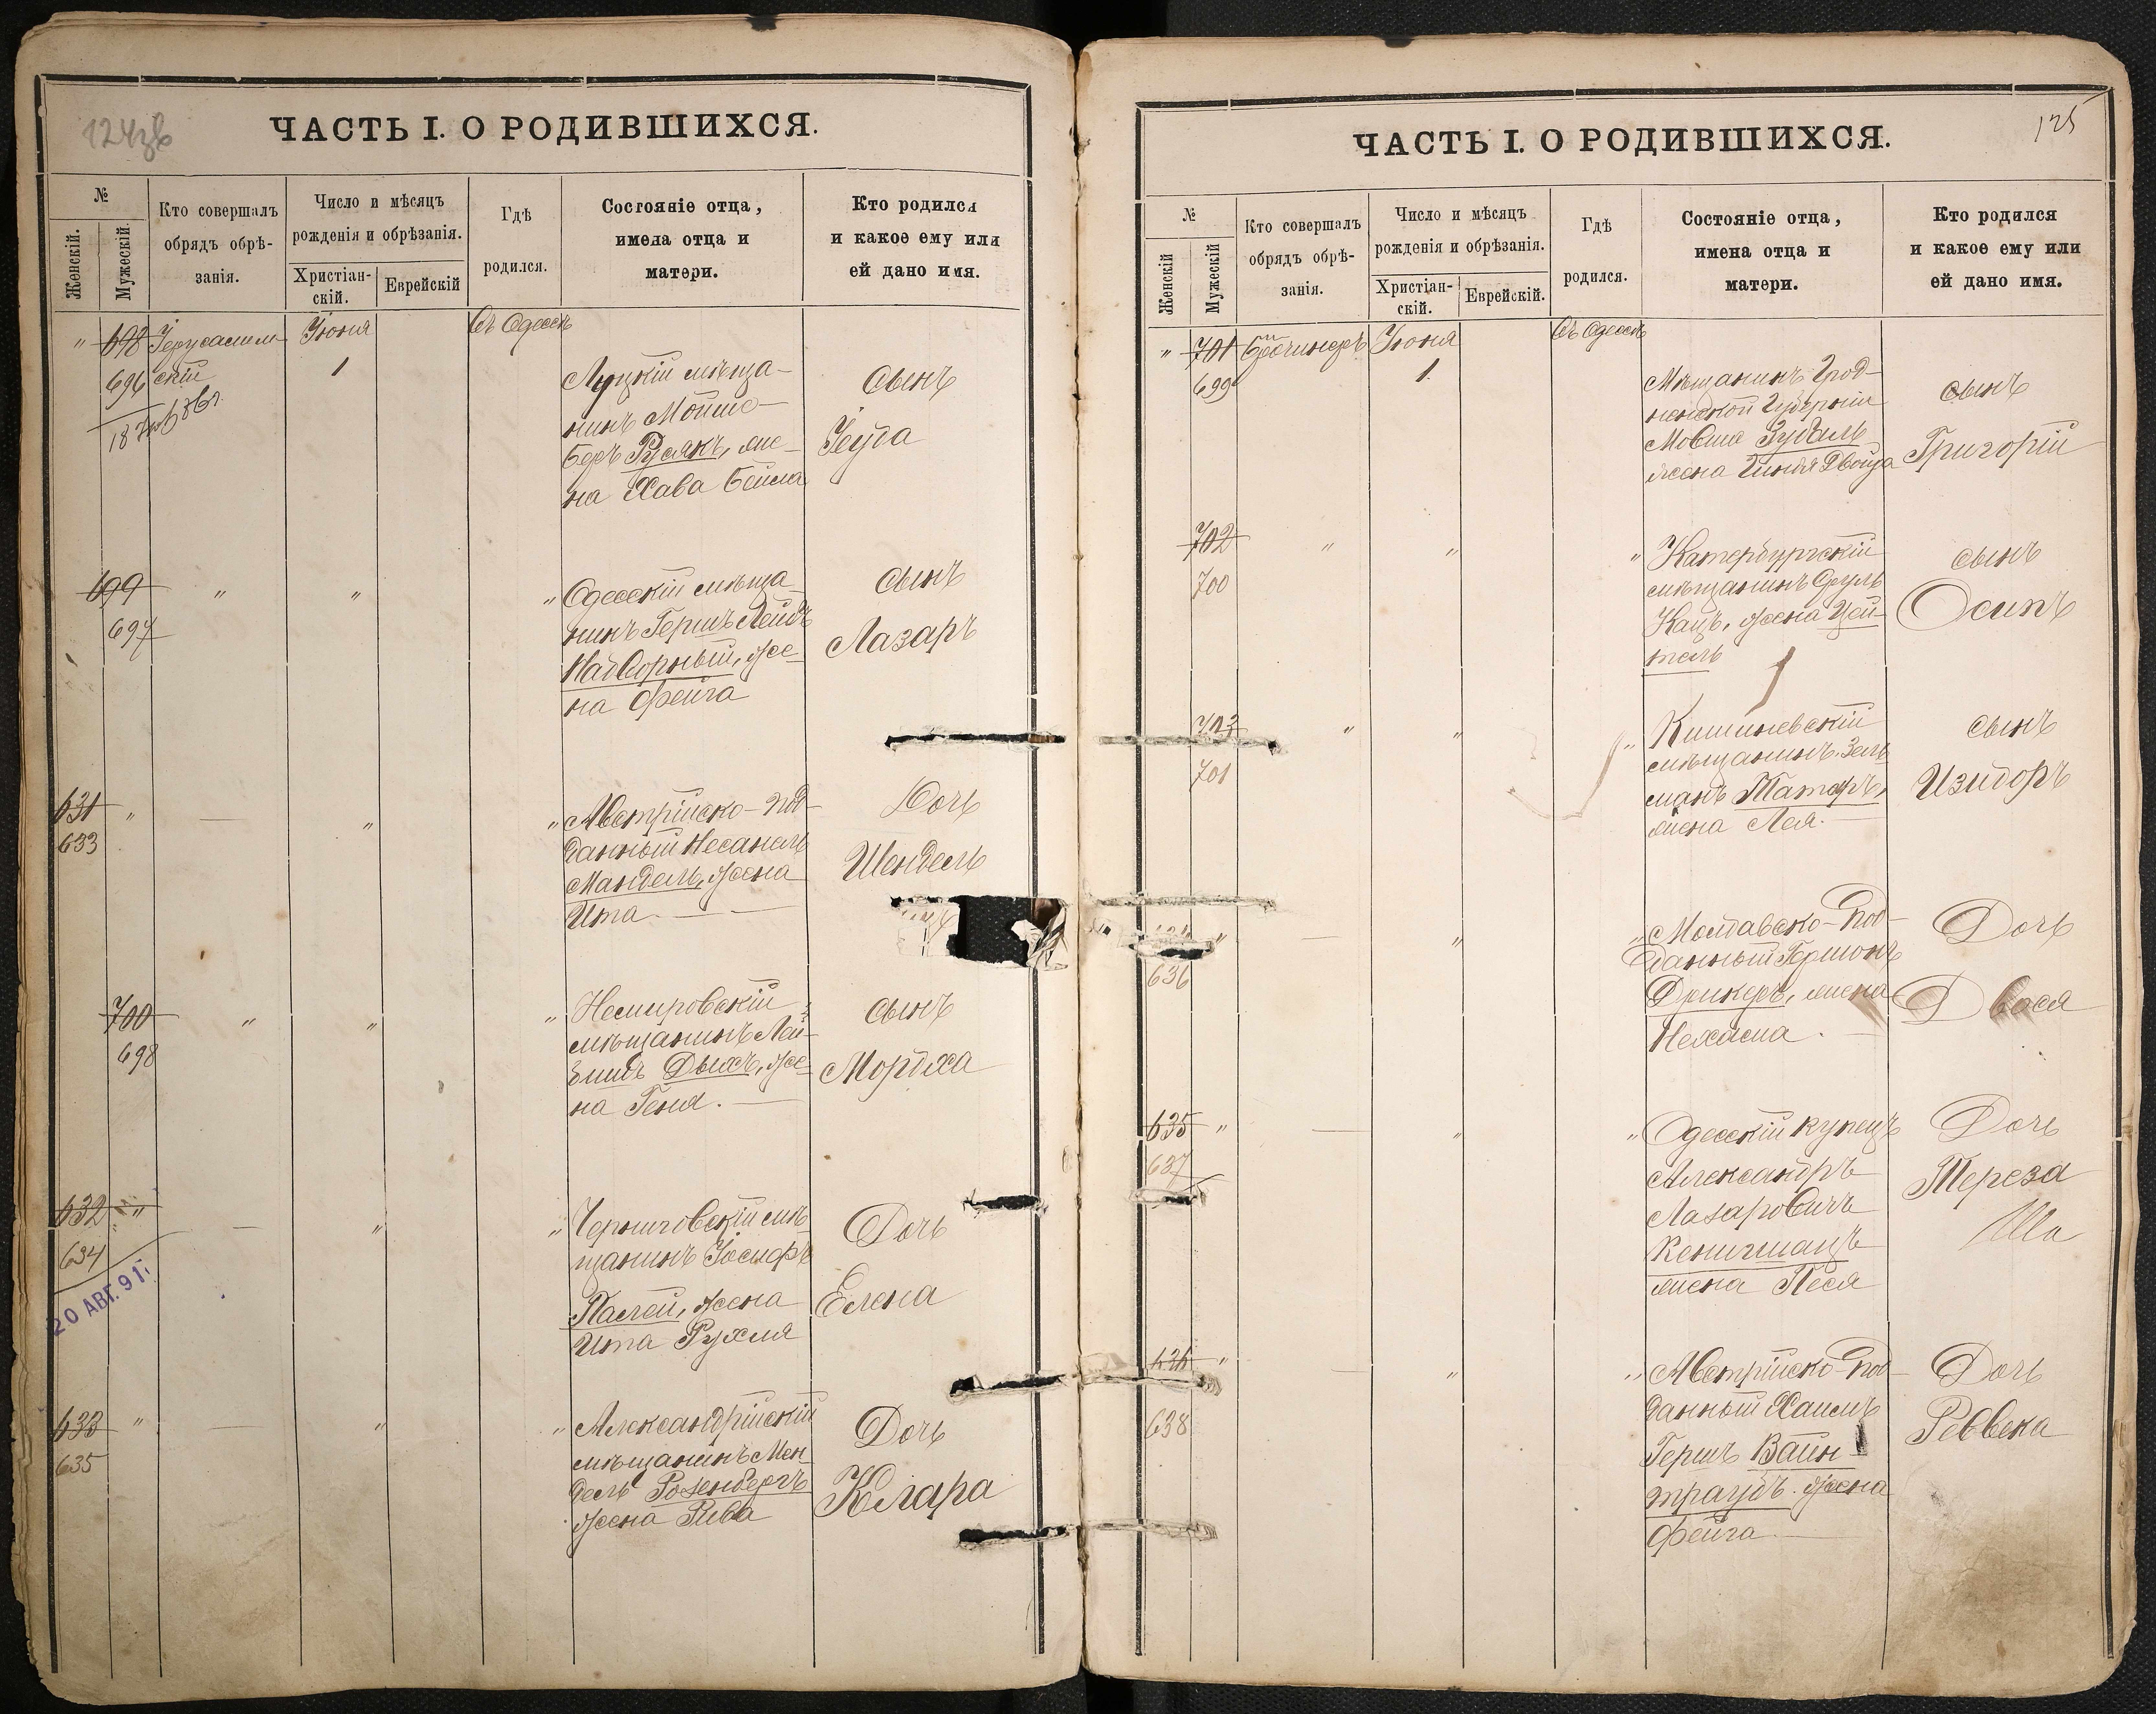 124 зв
ЧАСТЬ I. О РОДИВШИХСЯ.
№
Женскій.
Мужескій.
Кто совершалъ
обрядъ обрѣ-
занія.
Число и мѣсяцъ
рожденія и обрѣзанія.
Христіан-
скій.
Еврейскій
Гдѣ
родился.
Состояніе отца,
имена отца и
матери.
Кто родился
и какое ему или
ей дано имя.
" 698 Іерусалим- Іюня Въ Одессѣ
696 скій 1
Луцкій мѣща-
нинъ Мошко-
Беръ Русякъ, же-
на Хава Бейла
сынъ
Іеуда
699 " " "
697
Одесскій мѣща-
нинъ Гершъ Лейбъ
Надворный, же-
на Фейга
сынъ
Лазаръ
631 " — " "
633
Австрійско-под-
данный Несанель
Мандель, жена
Ита. —
Дочь
Шендель
700 " " "
698
Немировскій
мѣщанинъ Лей-
бишъ Дыхъ, же-
на Геня. —
сынъ
Мордха
632 " — " "
634
20 АВГ. 91
Черниговскій мѣ-
щанинъ Іосифъ
Палей, жена
Ита Рухля
Дочь
Елена
633 " — " "
635
Александрійскій
мѣщанинъ Мен
дель Розенбергъ
жена Рива
Дочь
Клара
125
ЧАСТЬ I. О РОДИВШИХСЯ.
№
Женскій
Мужескій
Кто совершалъ
обрядъ обрѣ-
занія.
Число и мѣсяцъ
рожденія и обрѣзанія.
Христіан-
скій.
Еврейскій.
Гдѣ
родился.
Состояніе отца,
имена отца и
матери.
Кто родился
и какое ему или
ей дано имя.
" 701 Іюня Въ Одессѣ
699 1.
Мѣщанинъ Грод-
ненской Губерніи
Мовша Зубаль
жена Гинда Двойра
сынъ
Григорій
702 " " "
700
Катербургскій
мѣщанинъ Сруль
Кацъ, жена Цей-
тель
сынъ
Осипъ
703 " " "
701
Кишиневскій
мѣщанинъ Зель
манъ Татаръ,
жена Лея. —
сынъ
Изидоръ
" — " "
636
Молдавско-под-
данный Гершонъ
Дрикеръ, жена
Нехама. —
Дочь
Двося
635 " — " "
637
Одесскій купецъ
Александръ
Лазаровичъ
Кенигшацъ
жена Песя
Дочь
Тереза
636 " — " "
638
Австрійско-под-
данный Хаимъ
Гершъ Вайн-
траубъ. жена
Фейга. —
Дочь
Реввека